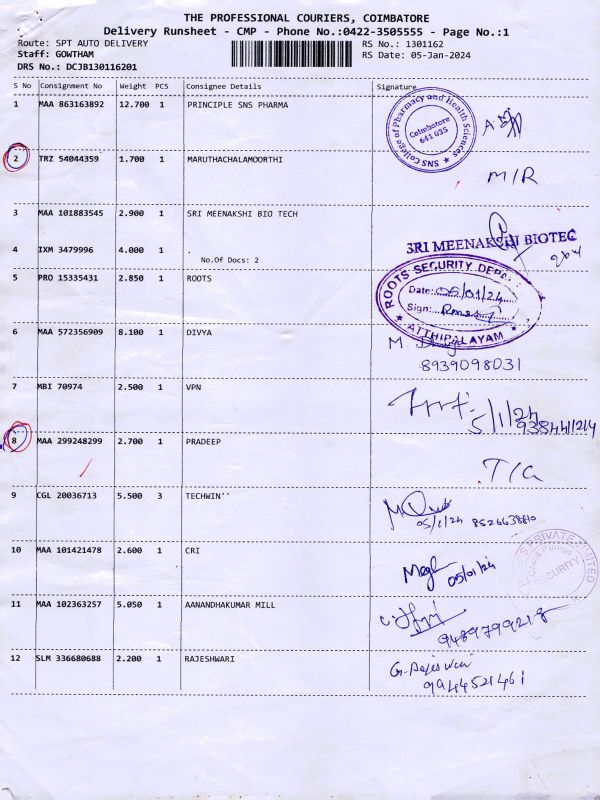 THE PROFESSIONAL COURIERS, COIMBATORE
Delivery Runsheet - CMP - Phone No.:0422-3505555 - Page No.:1
Route: SPT AUTO DELIVERY
RS No.: 1301162
Staff: GOWTHAM
RS Date: 05-Jan-2024
DRS No.: DCJB130116201
S No Consignment No Weight PCS Consignee Details Signature
1 MAA 863163892 12.700 1 PRINCIPLE SNS PHARMA
SNS College of Pharmacy and Health Sciences
Coimbatore
641 035
2 TRZ 54044359 1.700 1 MARUTHACHALAMOORTHI
M/R
3 MAA 101883545 2.900 1 SRI MEENAKSHI BIO TECH
SRI MEENAKSHI BIOTEC
4 IXM 3479996 4.000 1 .
No.Of Docs: 2
5 PRO 15335431 2.850 1 ROOTS
ROOTS SECURITY DEPT
Date: 05/01/24
Sign:
ATTHIPALAYAM
6 MAA 572356909 8.100 1 DIVYA
8939098031
7 MBI 70974 2.500 1 VPN
5/1/24
8 MAA 299248299 2.700 1 PRADEEP
T/G
9 CGL 20036713 5.500 3 TECHWIN''
05/1/24 8526638810
10 MAA 101421478 2.600 1 CRI
05/01/24
PRIVATE LIMITED
SECURITY
11 MAA 102363257 5.050 1 AANANDHAKUMAR MILL
9489799218
12 SLM 336680688 2.200 1 RAJESHWARI
9944521461